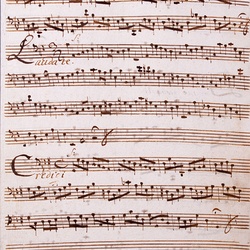 Laudate.
Credidi